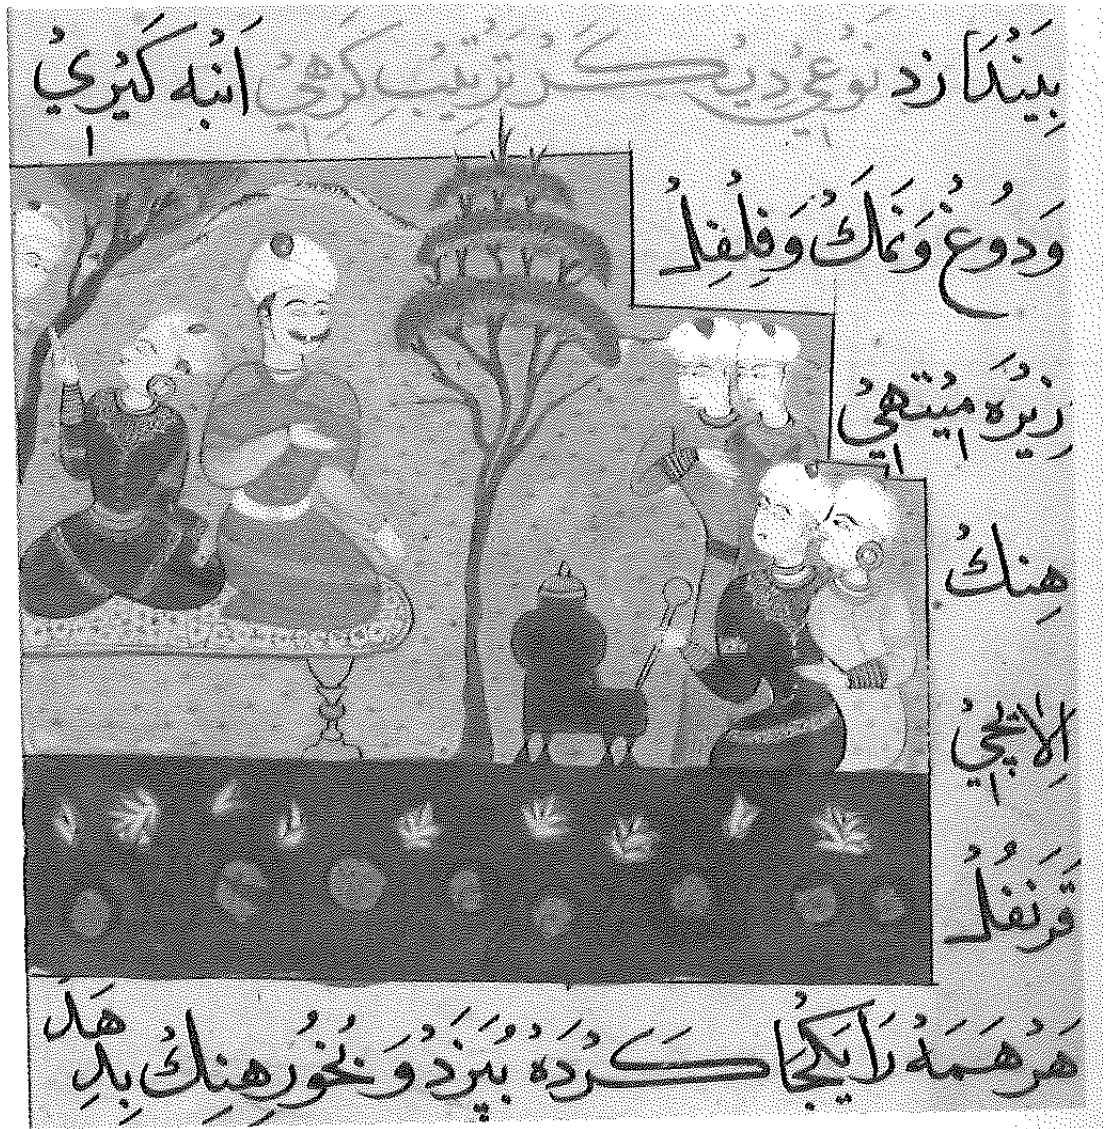 بِيَنْدَازد نَوْعِي دِيكَرْ تَرْتِيبِ كَرهِيْ اَنْبَه كَيْرِيْ
وَدُوغْ وَنَمَكْ وَفِلْفِلْ
زِيْرَه مِيْتهِيْ
هِنكْ
اِلاٰيچِيْ
قَرَنفُلْ
هَرْ هَمَهْ رَا يَكْجَا كَرْدَهْ بُپَزَدْ وَ بُخُورِ هِنكْ بِدِهَدْ